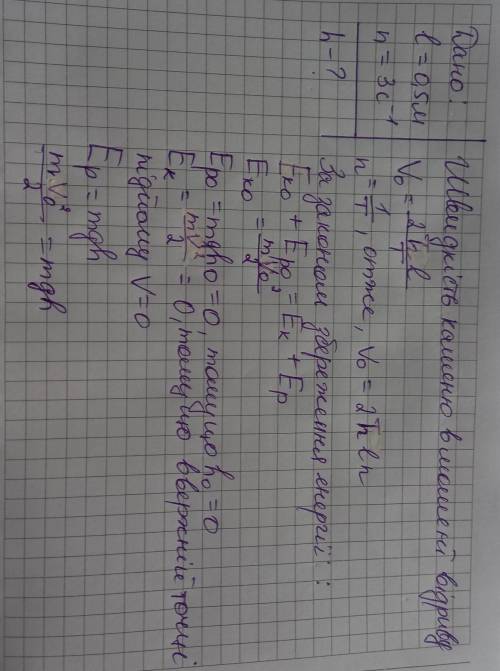 Дано:
l = 0,5м
n = 3с⁻¹
h - ?
Швидкість каменю в момент відриву
V₀ = 2πl/T
n = 1/T, отже, V₀ = 2πln
За законом збереження енергії:
Eк₀ + Eр₀ = Eк + Eр
Eк₀ = mV₀²/2
Eр₀ = mgh₀ = 0, тому що h₀ = 0
Eк = mV²/2 = 0, тому що в верхній точці
підйому V = 0
Eр = mgh
mV₀²/2 = mgh